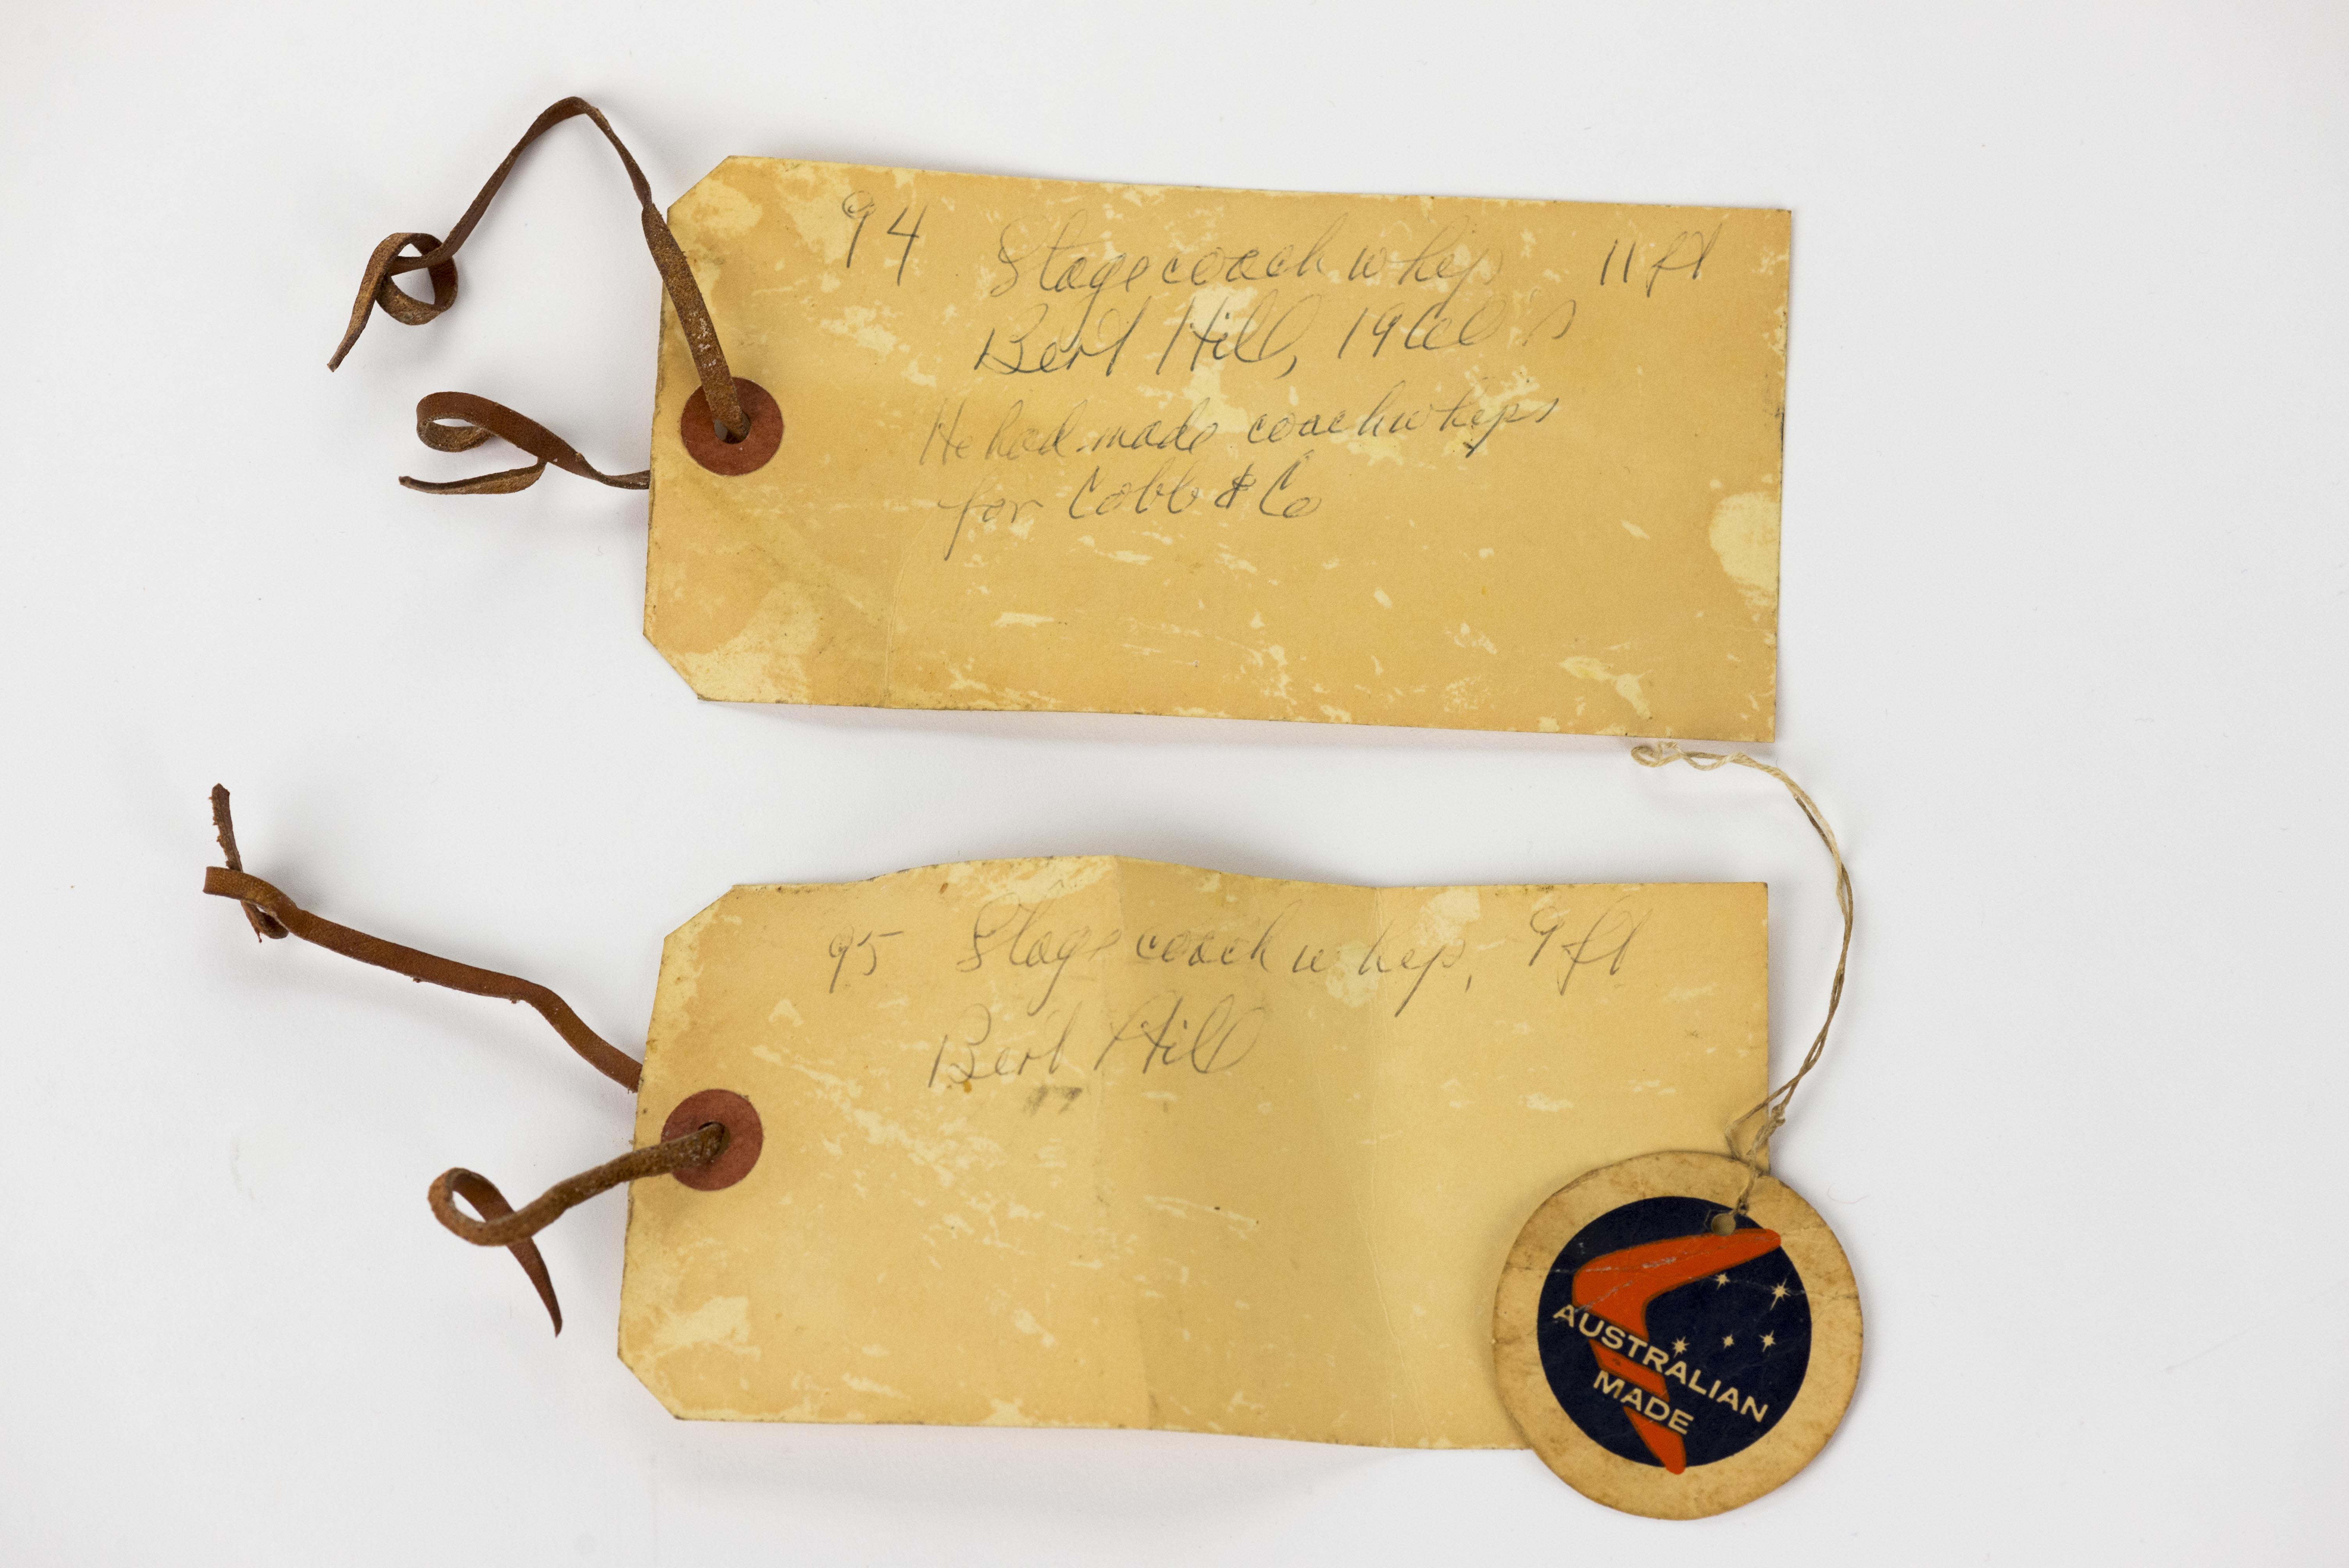 94 Stagecoach whip 11 ft
Bert Hill, 1960's
He had made coachwhips
for Cobb & Co
95 Stagecoach whip, 9 ft
Bert Hill
AUSTRALIAN
MADE